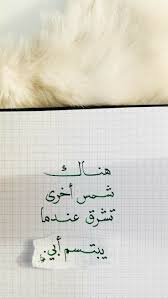 هناك
شمس أخرى
تشرق عندما
يبتسم أبي.